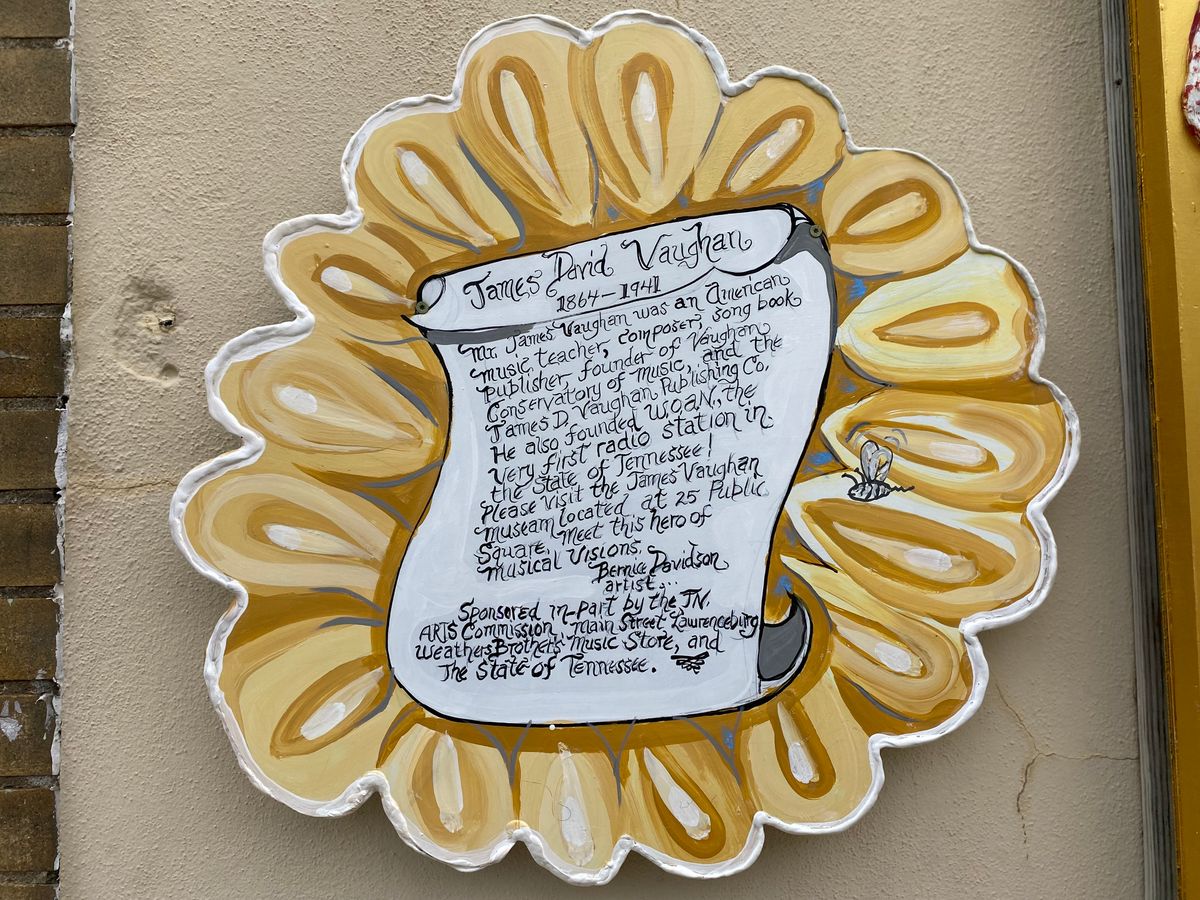 James David Vaughan
1864-1941
Mr. James Vaughan was an American
music teacher, composer, song book
publisher, founder of Vaughan
Conservatory of music, and the
James D. Vaughan Publishing Co.
He also founded W.O.A.N., the
very first radio station in
the State of Tennessee!
Please visit the James Vaughan
museam located at 25 Public
Square, meet this hero of
musical Visions.
Bernice Davidson
artist...
Sponsered in-part by the TN.
ARTS Commission, Main Street Lawrenceburg
Weathers Brothers Music Store, and
The State of Tennessee.